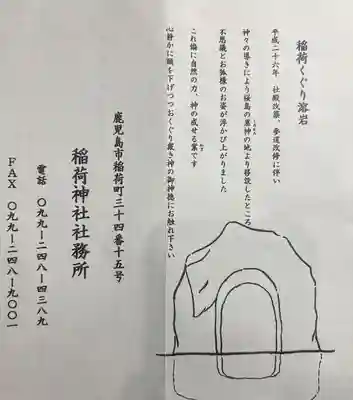 稲荷くぐり溶岩
平成二十六年　社殿改築、参道改修に伴い
神々の導きにより桜島の黒神の地より移設したところ
不思議とお狐様のお姿が浮かび上がりました
これ偏に自然の力、神の成せる業です
心静かに頭を下げつつおくぐり戴き神の御神徳にお触れ下さい
鹿児島市稲荷町三十四番十五号
稲荷神社社務所
電話　〇九九ー二四八ー四三八九
ＦＡＸ　〇九九ー二四八ー九〇〇一